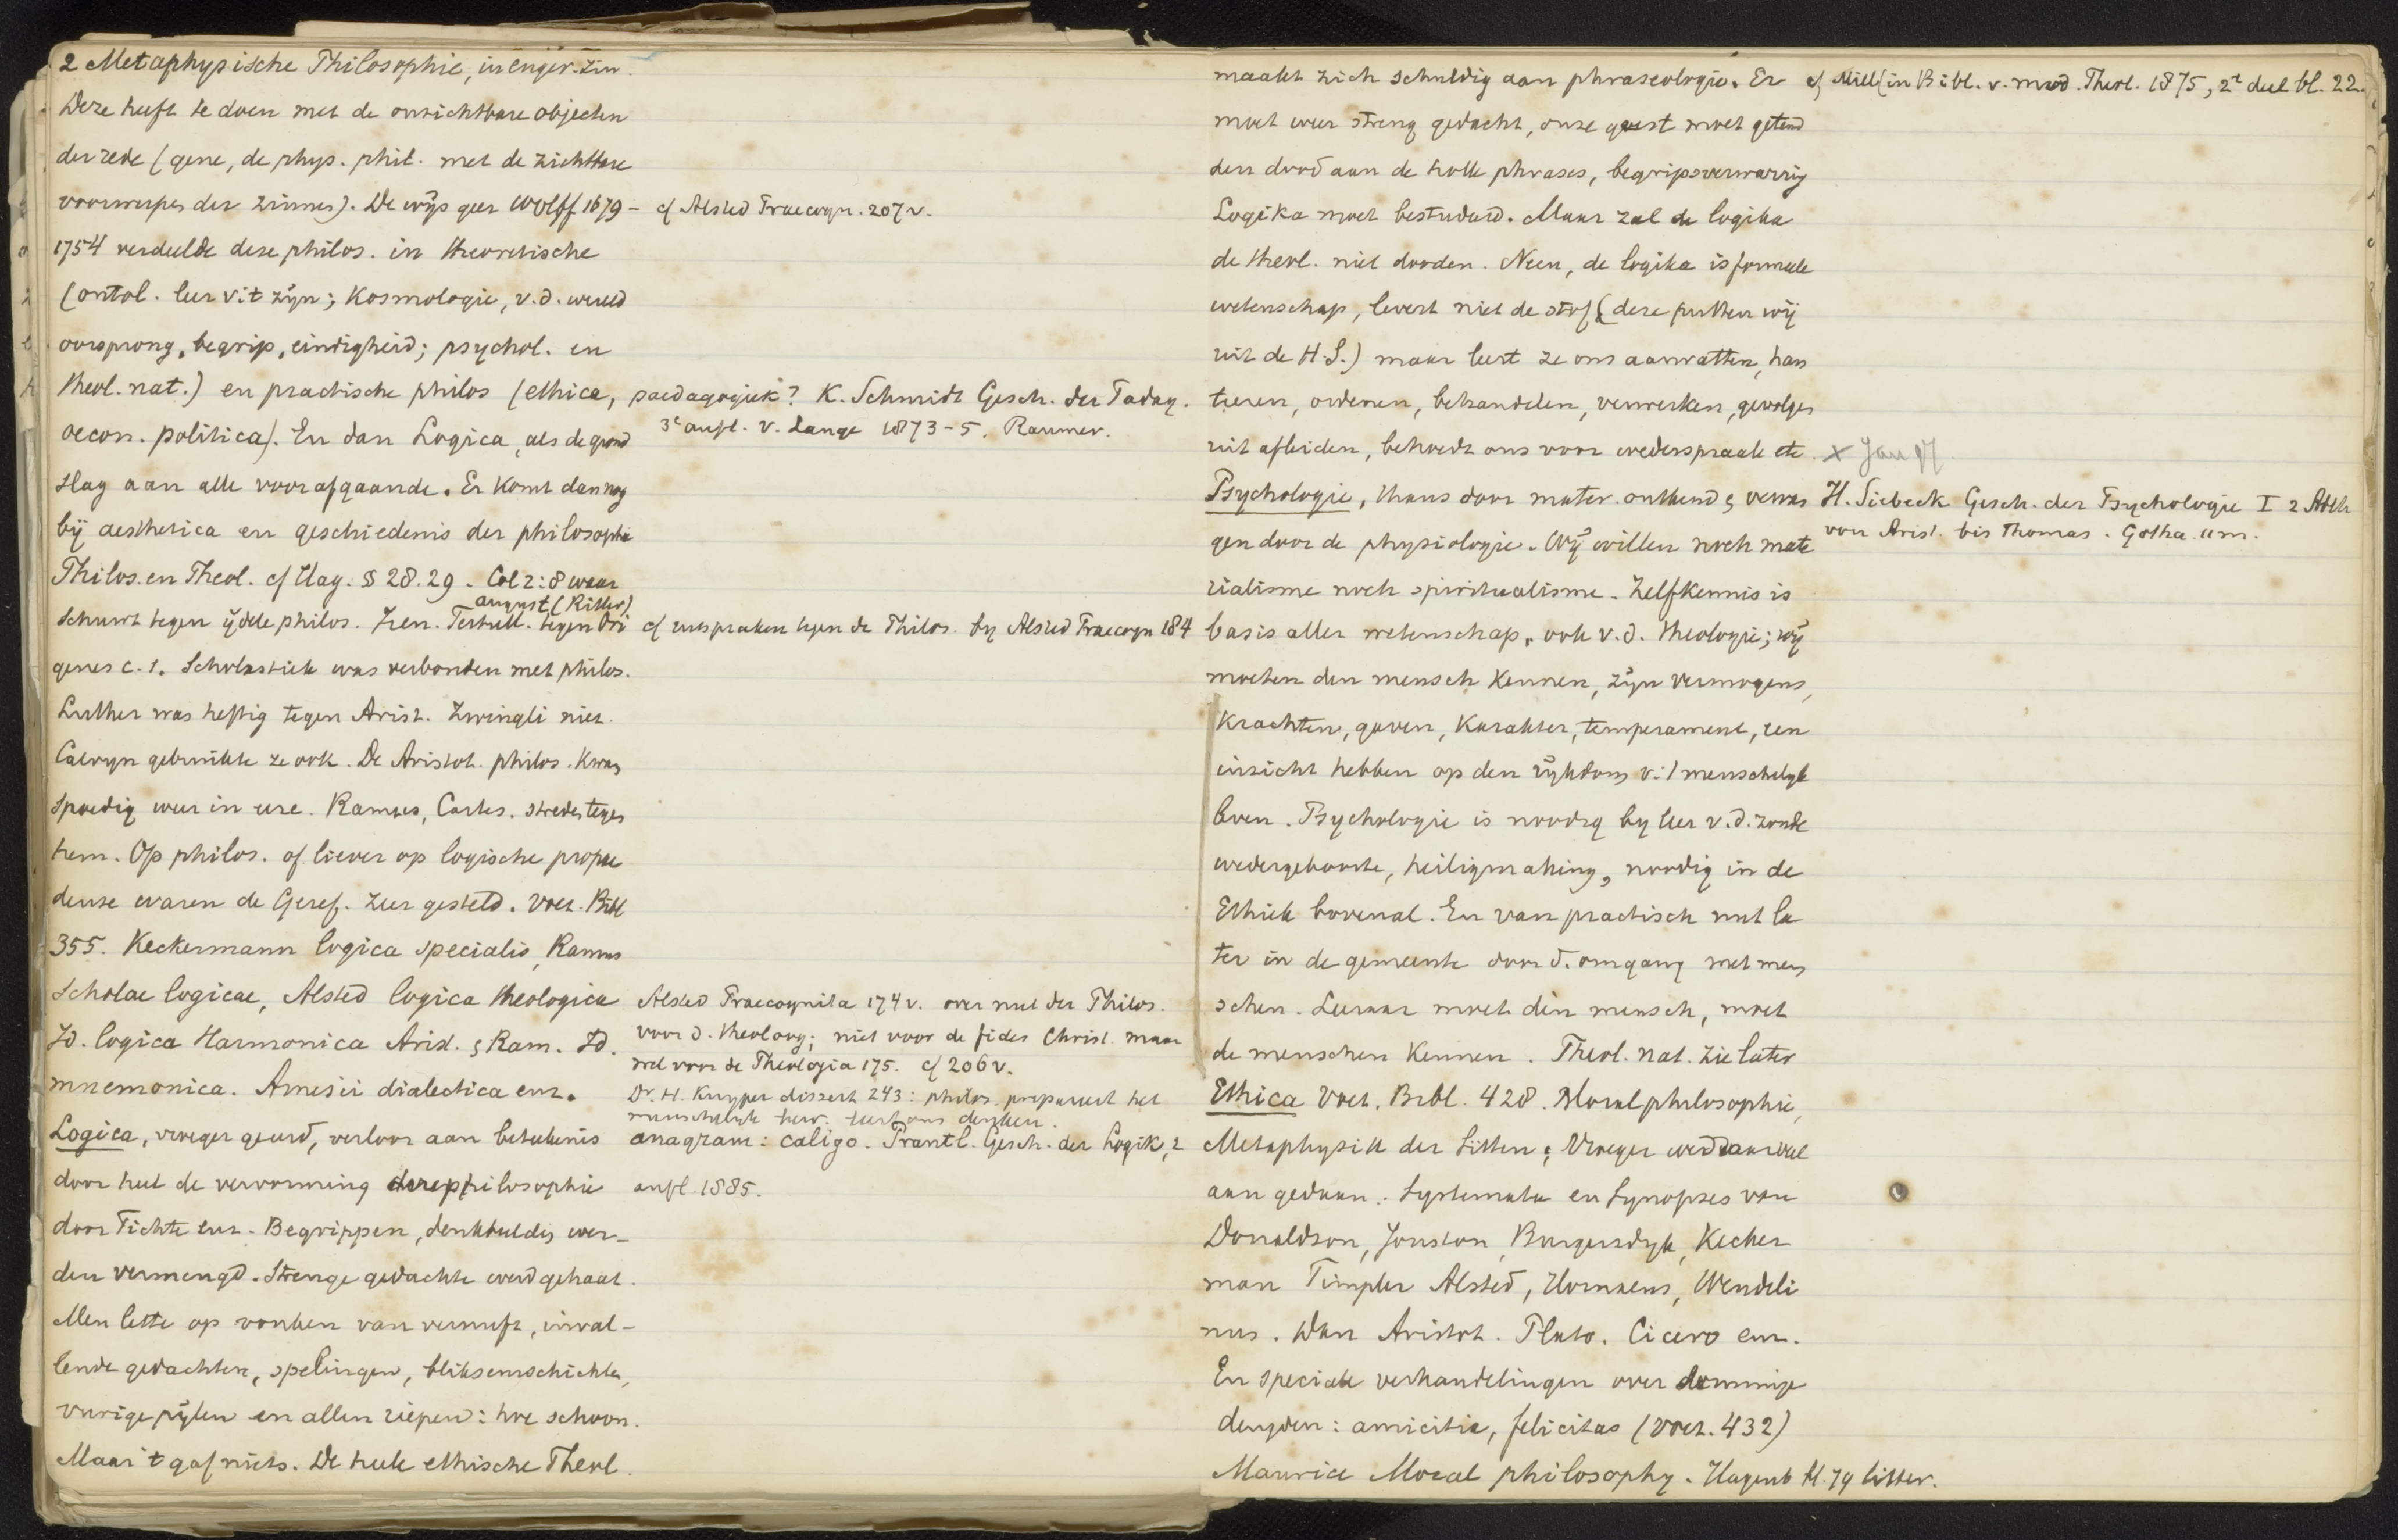 2 Metaphysische Philosophie, in enger. zin.
Deze heeft te doen met de onzichtbare objecten
der rede (gene, de phys. phil. met de zichtbare
voorwerpen der zinnen). De wijsgeer Wolff 1679 -
c/ Alsted Praecogn. 207 v.
1754 verdeelde deze philos. in theoretische
(ontol. leer v. 't zijn; Kosmologie, v. d. wereld
oorsprong, begrip, eindigheid; psychol. en
theol. nat.) en practische philos (ethica,
paedagogiek? K. Schmidt Gesch. der Padag.
3e aufl. v. Lange 1873-5. Raumer.
oecon. politica). En dan Logica, als de grond
slag aan alle voorafgaande. Er komt dan nog
bij aesthetica en geschiedenis der philosophie
Philos. en Theol. cf Hag. § 28. 29. Col 2:8 waar
august (Ritter)
schuwt tegen ijdele philos. Iren. Tertull. tegen Ori
cf uitspraken tegen de Philos. by Alsted Praecogn 184
genes c. s. Scholastiek was verbonden met philos.
Luther was heftig tegen Arist. Zwingli niet.
Calvyn gebruikte ze ook. De Aristot. philos. kwam
spoedig weer in ere. Ramus, Cartes. streden tegen
hem. Op philos. of liever op logische propae
deuse waren de Geref. zeer gesteld. Voet. Bibl
355. Keckermann logica specialis, Ramus
Scholae logicae, Alsted logica theologica
Id. logica Harmonica Arist. & Ram. Id.
mnemonica. Amesii dialectica enz.
Alsted Praecognita 174 v. over nut der Philos.
voor d. theoloog; niet voor de fides Christ. maar
wel voor de Theologia 175. cf 206 v.
Dr. H. Kuyper dissert 243: philos. prepareert het
menschelijk bew. leert ons denken.
Logica, vroeger geeerd, verloor aan beteekenis
anagram: caligo. Prantl. Gesch. der Logik, 2
aufl. 1885.
door heel de vervorming der philosophie
door Fichte enz. Begrippen, denkbeelden wer-
den vermengd. Strenge gedachte werd gehaat.
Men lette op vonken van vernuft, inval-
lende gedachten, spelingen, bliksemschichten,
vurige pijlen en allen riepen: hoe schoon.
Maar 't gaf niets. De heele ethische Theol.
maakt zich schuldig aan phraseologie. Er
cf Mill (in Bibl. v. mod. Theol. 1875, 2e deel bl. 22.
moet weer streng gedacht, onze geest moet
den dood aan de holle phrases, begripsverwarring
Logika moet bestudeerd. Maar zal de logika
de theol. niet dooden. Neen, de logika is formeele
wetenschap, levert niet de stof (deze putten wij
uit de H.S.) maar leert ze ons aanvatten, han
teeren, ordenen, behandelen, verwerken, gevolgen
uit afleiden, behoedt ons voor wederspraak etc.
Psychologie, thans door mater. ontkend & vervan
H. Siebeck Gesch. der Psychologie I 2 Abth
von Arist. bis Thomas. Gotha. 11 m.
gen door de physiologie. Wij willen noch mate
rialisme noch spiritualisme. Zelfkennis is
basis aller wetenschap, ook v. d. theologie; wij
moeten den mensch kennen, zijn vermogens,
krachten, gaven, karakter, temperament, een
inzicht hebben op den rijkdom v. 't menschelijk
leven. Psychologie is noodig by leer v. d. zonde
wedergeboorte, heiligmaking, noodig in de
Ethiek bovenal. En van practisch nut la
ter in de gemeente door d. omgang met men
schen. Leeraar moet den mensch, moet
de menschen kennen. Theol. nat. zie later
Ethica Voet. Bibl. 428. Moraalphilosophie,
Metaphysik der Sitten; Vroeger werd daar veel
aan gedaan. Systemata en Synopses van
Donaldson, Jonston, Burgersdyk, Kecker
man Timpler Alsted, Hornaeus, Wendeli
nus. Dan Aristot. Plato. Cicero enz.
En speciale verhandelingen over sommige
deugden: amicitia, felicitas (Voet. 432)
Maurice Moral philosophy. Hagenb bl. 79 litter.